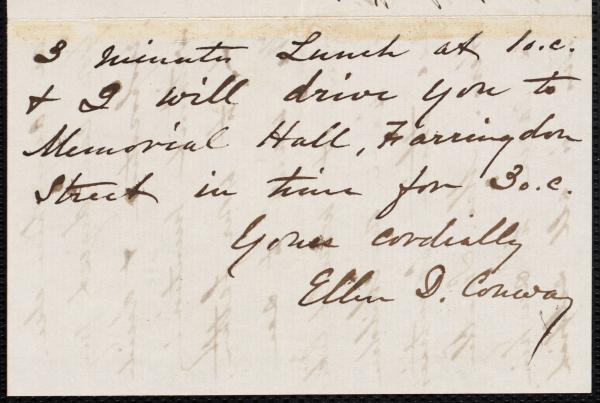 3 minutes Lunch at 1 o.c.
& I will drive you to
Memorial Hall, Farringdon
Street in time for 3 o.c.
Yours cordially
Ellen D. Conway